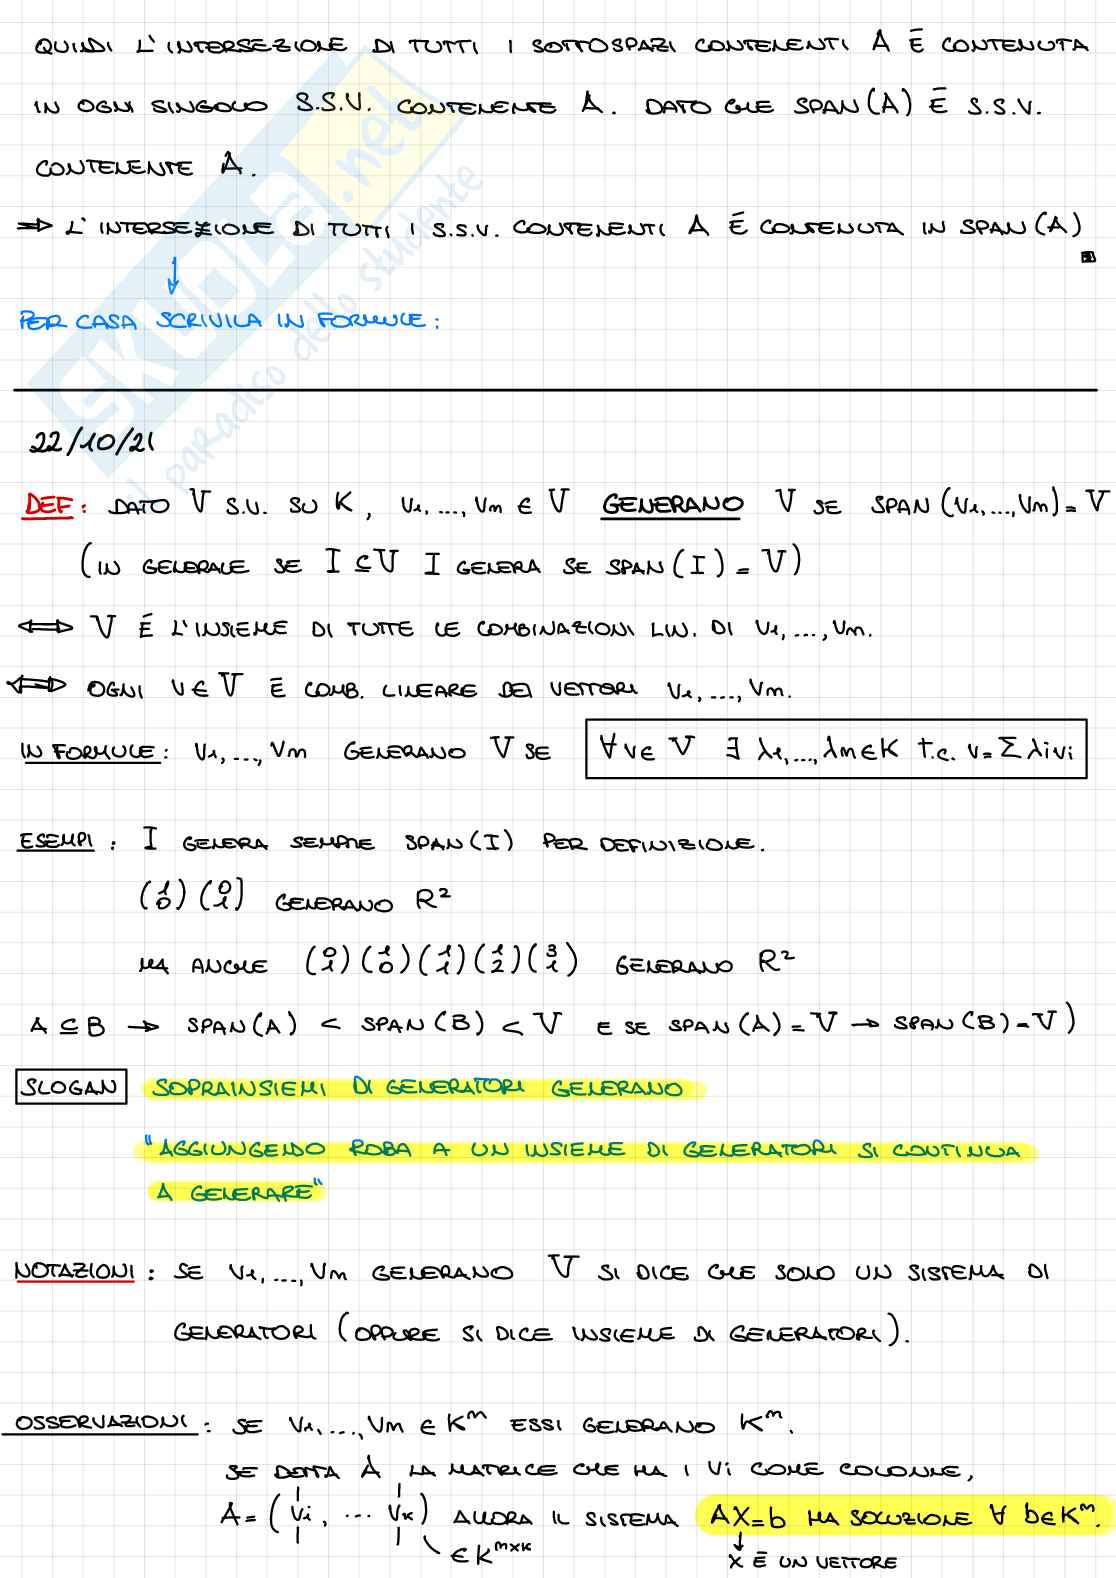 QUINDI L'INTERSEZIONE DI TUTTI I SOTTOSPAZI CONTENENTI A È CONTENUTA
IN OGNI SINGOLO S.S.V. CONTENENTE A. DATO CHE SPAN(A) È S.S.V.
CONTENENTE A.
⇒ L'INTERSEZIONE DI TUTTI I S.S.V. CONTENENTI A È CONTENUTA IN SPAN(A)
↓
PER CASA SCRIVILA IN FORMULE:
SKUOLA.net
il paradiso dello studente
22/10/21
DEF: DATO V S.V. SU K, V1,...,Vm ∈ V GENERANO V SE SPAN(V1,...,Vm)=V
(IN GENERALE SE I ⊆ V I GENERA SE SPAN(I) = V)
⟺ V È L'INSIEME DI TUTTE LE COMBINAZIONI LIN. DI V1,...,Vm.
⟺ OGNI V∈V È COMB. LINEARE DEI VETTORI V1,...,Vm.
IN FORMULE: V1,...,Vm GENERANO V SE ∀v∈ V ∃ λ1,...,λm∈K t.c. v=Σλivi
ESEMPI: I GENERA SEMPRE SPAN(I) PER DEFINIZIONE.
(1 0) (0 1) GENERANO R²
MA ANCHE (0 1)(1 0)(1 1)(1 2)(3 1) GENERANO R²
A ⊆ B → SPAN(A) < SPAN(B) < V E SE SPAN(A)=V → SPAN(B)=V)
SLOGAN SOPRAINSIEMI DI GENERATORI GENERANO
"AGGIUNGENDO ROBA A UN INSIEME DI GENERATORI SI CONTINUA
A GENERARE"
NOTAZIONI: SE V1,...,Vm GENERANO V SI DICE CHE SOLO UN SISTEMA DI
GENERATORI (OPPURE SI DICE INSIEME DI GENERATORI).
OSSERVAZIONI: SE V1,...,Vm ∈ K^m ESSI GENERANO K^m.
SE DETTA A LA MATRICE CHE HA I Vi COME COLONNE,
A = (Vi, ... Vk) ALLORA IL SISTEMA AX=b HA SOLUZIONE ∀ b∈K^m.
∈ K^mxk
↓
X È UN VETTORE